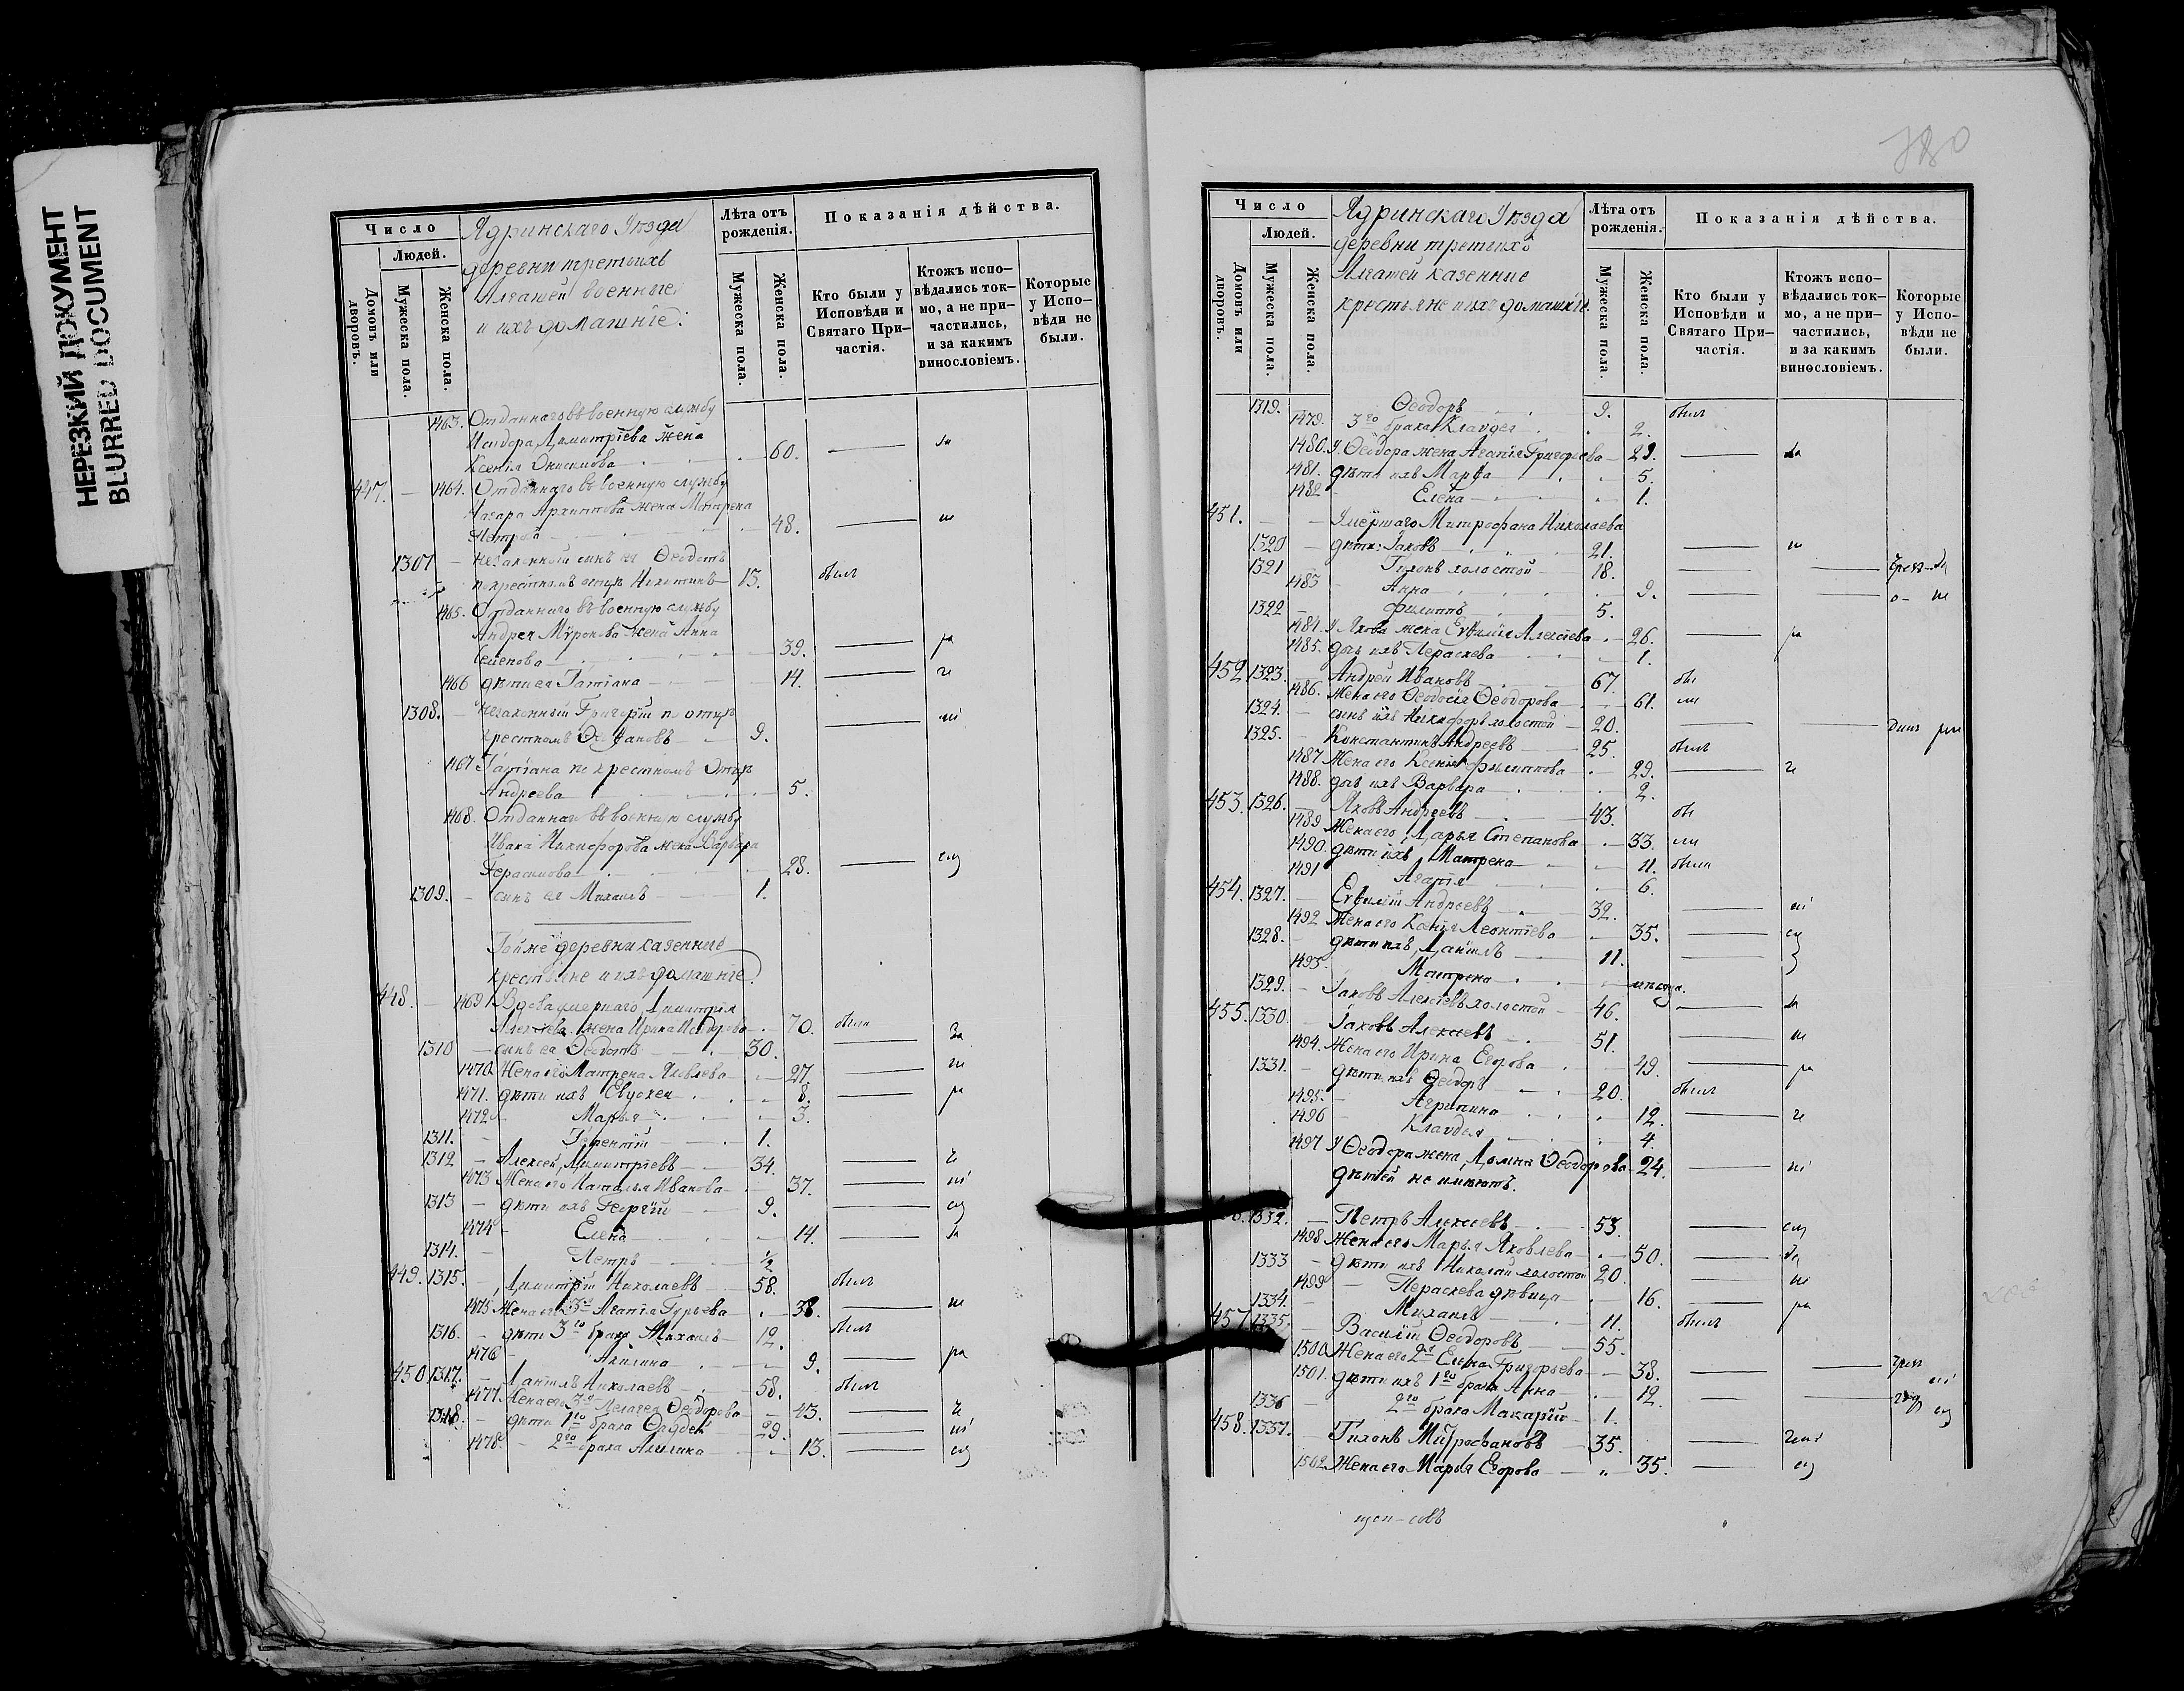 НЕРЕЗКИЙ ДОКУМЕНТ
BLURRED DOCUMENT
Число
Людей.
Домовъ или дворовъ.
Мужеска пола.
Женска пола.
Ядринскаго Уѣзда
деревни третьихъ
Алгашей военные
и ихъ домашніе:
Лѣта отъ рожденія.
Мужеска пола.
Женска пола.
Показанія дѣйства.
Кто были у Исповѣди и Святаго Причастія.
Ктожъ исповѣдались токмо, а не причастились, и за какимъ винословіемъ.
Которые у Исповѣди не были.
1463. Отданнаго въ военную службу
Исидора Димитріева жена
Ксенія Онисимова 60.
447. 1464. Отданнаго въ военную службу
Назара Архиппова жена Матрена
Петрова 48.
1307 незаконный сынъ ея Ѳеодотъ
по крестномъ отцѣ Никитинъ 13. былъ
1465. Отданнаго въ военную службу
Андрея Миронова жена Анна
Семенова 39.
1466 дѣти ея Татіана 14.
1308. незаконный Григорій по отцѣ
крестномъ 9.
1467 Татіана по крестномъ Отцѣ
Андреева 5.
1468. Отданнаго въ военную службу
Ивана Никифорова жена Варвара
Герасимова 28.
1309. сынъ ея Михаилъ 1.
Той же деревни казенные
крестьяне и ихъ домашніе.
448. 1469 Вдова умершаго Димитрія
Алексѣева жена Ирина Исидорова 70. была
1310 сынъ ея Ѳеодотъ 30. За
1470. Жена его Матрена Яковлева 27.
1471. дѣти ихъ Евдокея 8.
1472 Марья 3.
1311. Терентій 1.
1312 Алексей Димитріевъ 34.
1473 Жена его Наталья Иванова 37.
1313 дѣти ихъ Георгій 9.
1474 Елена 14.
1314. Петръ ½
449. 1315. Димитрій Николаевъ 58. былъ
1475 Жена его 3я Агапія Гурьева 38.
1316. дѣти 3го брака Михаилъ 12. былъ
1476 Акилина 9.
450 1317. Даніилъ Николаевъ 58. былъ
1477. Жена его 3я Пелагея Ѳеодорова 43.
1318. дѣти 1го брака Ѳаддей 29.
1478. 2го брака Акилина 13.
Число
Людей.
Домовъ или дворовъ.
Мужеска пола.
Женска пола.
Ядринскаго Уѣзда
деревни третьихъ
Алгашей казенные
крестьяне и ихъ домашніе.
Лѣта отъ рожденія.
Мужеска пола.
Женска пола.
Показанія дѣйства.
Кто были у Исповѣди и Святаго Причастія.
Ктожъ исповѣдались токмо, а не причастились, и за какимъ винословіемъ.
Которые у Исповѣди не были.
1319. Ѳеодоръ 9. былъ
1479. 3го брака Клавдея 2.
1480. У Ѳеодора жена Агапія Григорьева 29.
1481. дѣти ихъ Марѳа 5.
1482 Елена 1.
451. Умершаго Митрофана Николаева
1320 дѣти: Іаковъ 21.
1321 Тихонъ холостой 18.
1483 Анна 9.
1322 Филиппъ 5.
1484. У Якова жена Евѳимія Алексіева 26.
1485. дочь ихъ Параскева 1.
452 1323. Андрей Ивановъ 67. бы
1486. Жена его Ѳеодосія Ѳеодорова 61. ли
1324. сынъ ихъ Никифоръ холостой 20.
1325. Константинъ Андреевъ 25. былъ
1487 Жена его Ксенія Филиппова 29.
1488. дочь ихъ Варвара 2.
453. 1326. Яковъ Андреевъ 43. бы
1489 Жена его Дарья Степанова 33. ли
1490. дѣти ихъ Матрена 11. была
1491 Агапія 6.
454. 1327. Евѳимій Андреевъ 32.
1492 Жена его Ксенія Леонтіева 35.
1328. дѣти ихъ Даніилъ 11.
1493. Матрена
1329. Іаковъ Алексѣевъ холостой 46.
455. 1330. Іаковъ Алексѣевъ 51.
1494. Жена его Ирина Егорова 49.
1331. дѣти ихъ Ѳеодоръ 20. былъ
1495. Агрипина 12.
1496 Клавдея 4.
1497 У Ѳеодора жена Домна Ѳеодорова 24.
дѣтей не имѣютъ.
1332. Петръ Алексѣевъ 53.
1498 Жена его Марья Яковлева 50.
1333 дѣти ихъ Николай холостой 20.
1499 Параскева дѣвица 16.
1334. Михаилъ 11. былъ
457 1335. Василій Ѳеодоровъ 55.
1500 Жена его 2я Елена Григорьева 38.
1501. дѣти ихъ 1го брака Анна 12.
1336 2го брака Макарій 1.
458. 1337. Тихонъ Митрофановъ 35.
1502 Жена его Марья Егорова 35.